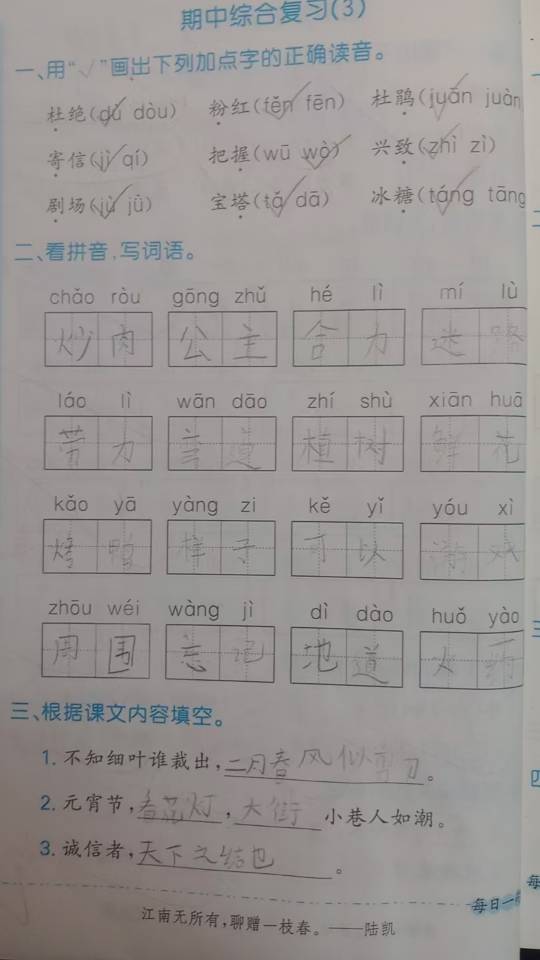 期中综合复习(3)
一、用“√”画出下列加点字的正确读音。
杜绝(dù dòu) 粉红(fěn fēn) 杜鹃(juān juàn
寄信(jì qí) 把握(wū wò) 兴致(zhì zì)
剧场(jù jū) 宝塔(tǎ dā) 冰糖(táng tāng
二、看拼音,写词语。
chǎo ròu gōng zhǔ hé lì mí lù
炒肉 公主 合力 迷路
láo lì wān dāo zhí shù xiān huā
劳力 弯道 植树 鲜花
kǎo yā yàng zi kě yǐ yóu xì
烤鸭 样子 可以 游戏
zhōu wéi wàng jì dì dào huǒ yào
周围 忘记 地道 火药
三、根据课文内容填空。
1. 不知细叶谁裁出,二月春风似剪刀。
2. 元宵节,看花灯,大街小巷人如潮。
3. 诚信者,天下之结也。
每日一
江南无所有,聊赠一枝春。——陆凯